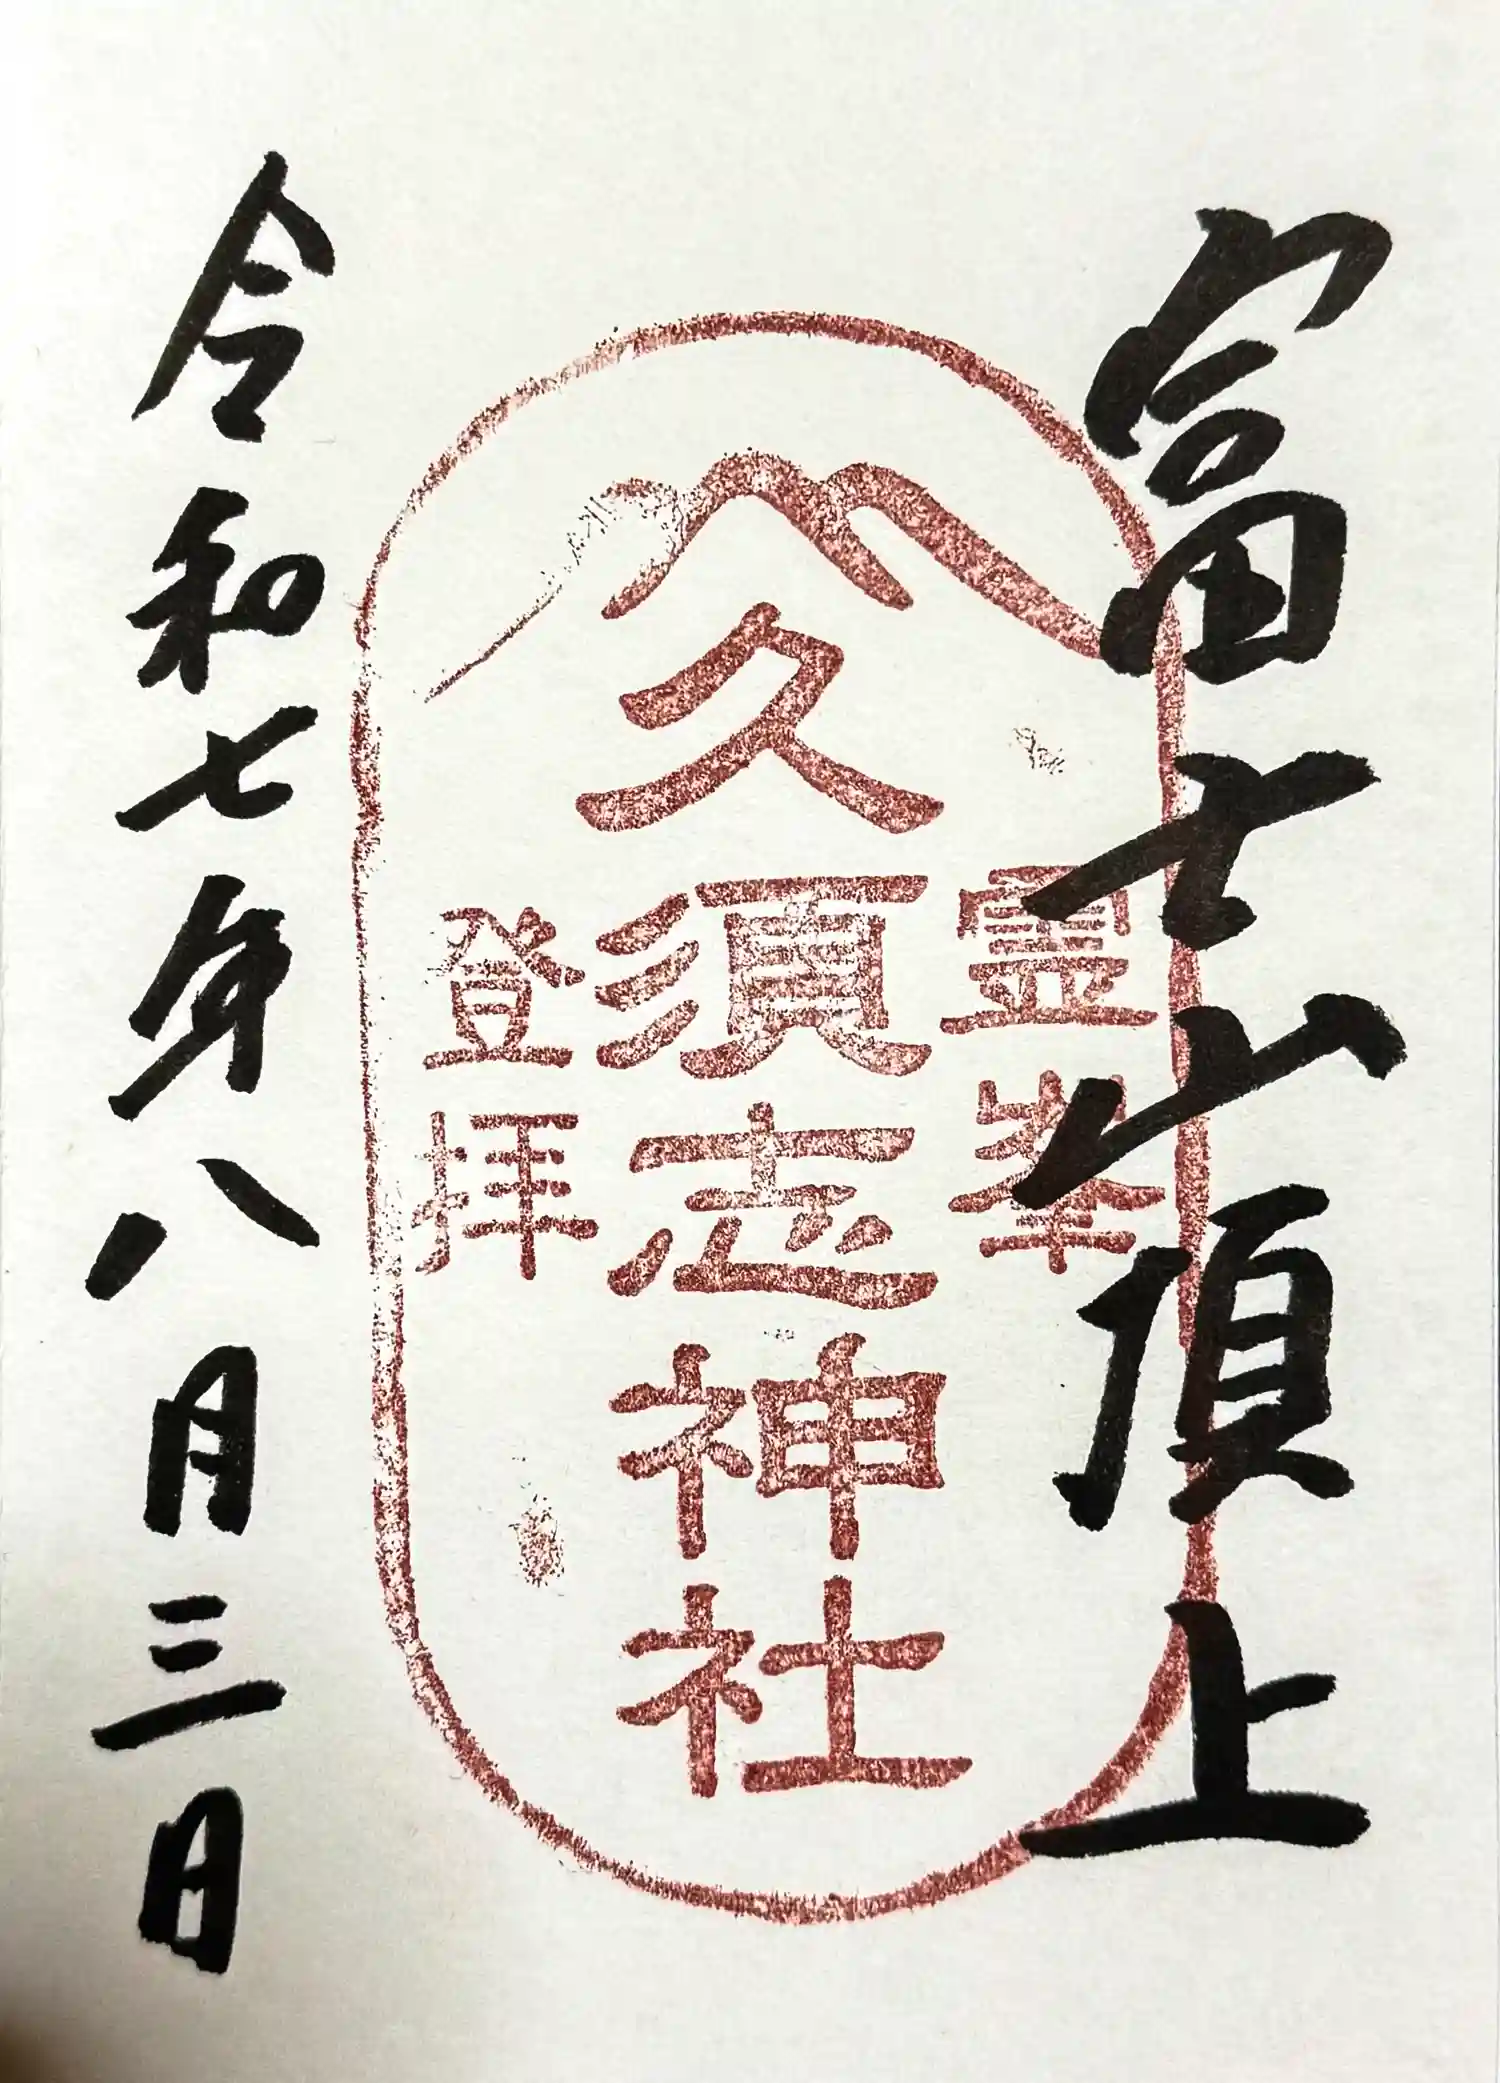 富士山頂上
霊峯
久須志神社
登拝
令和七年八月三日